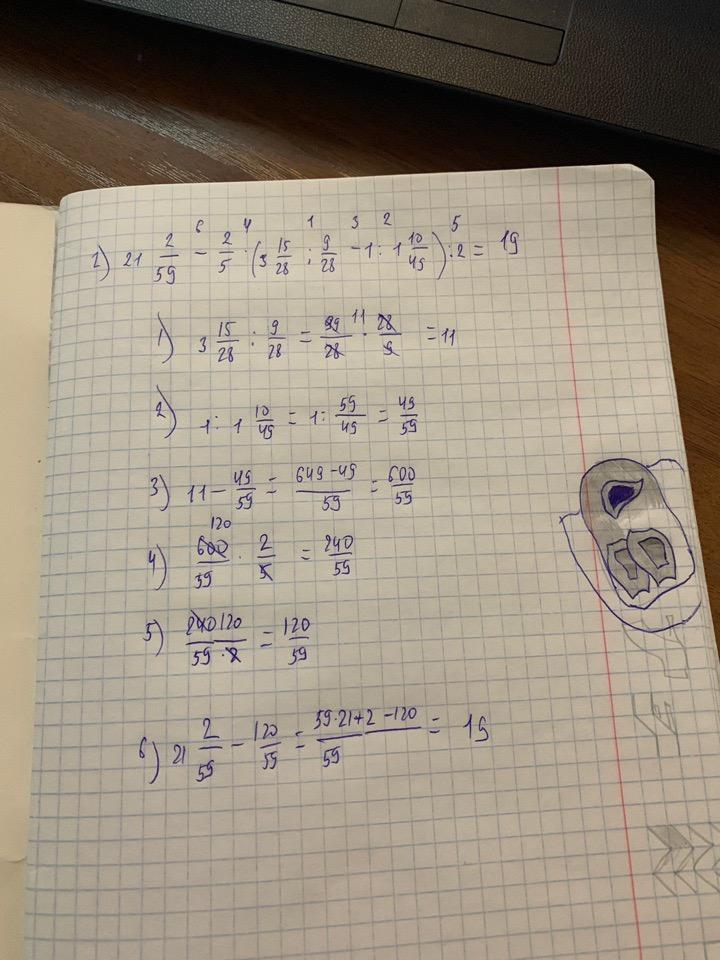 1) 21 2/59 - 2/5 · (3 15/28 : 9/28 - 1 : 1 10/49) : 2 = 19
1) 3 15/28 : 9/28 = 99/28 · 28/9 = 11
2) 1 : 1 10/49 = 1 : 59/49 = 49/59
3) 11 - 49/59 = (649 - 49)/59 = 600/59
4) 600/59 · 2/5 = 240/59
5) 240/(59 · 2) = 120/59
6) 21 2/59 - 120/59 = (59·21+2-120)/59 = 19